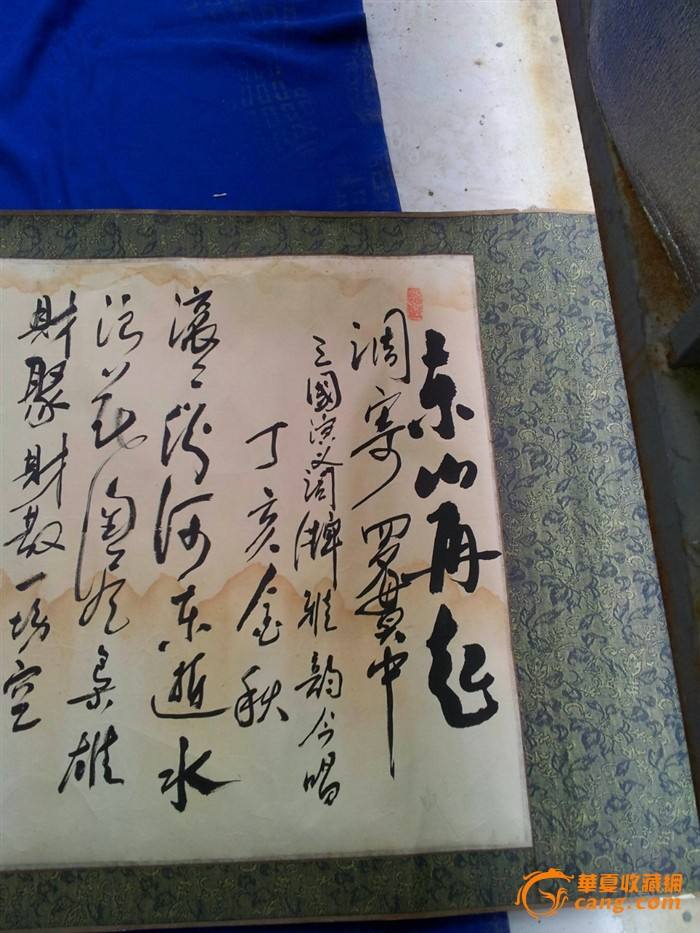 东山再起
调寄罗贯中
三國演义词牌雅韵今唱
丁亥金秋
滚滚汾河东逝水
浪花淘尽枭雄
财聚财散一场空
華夏收藏網
cang.com